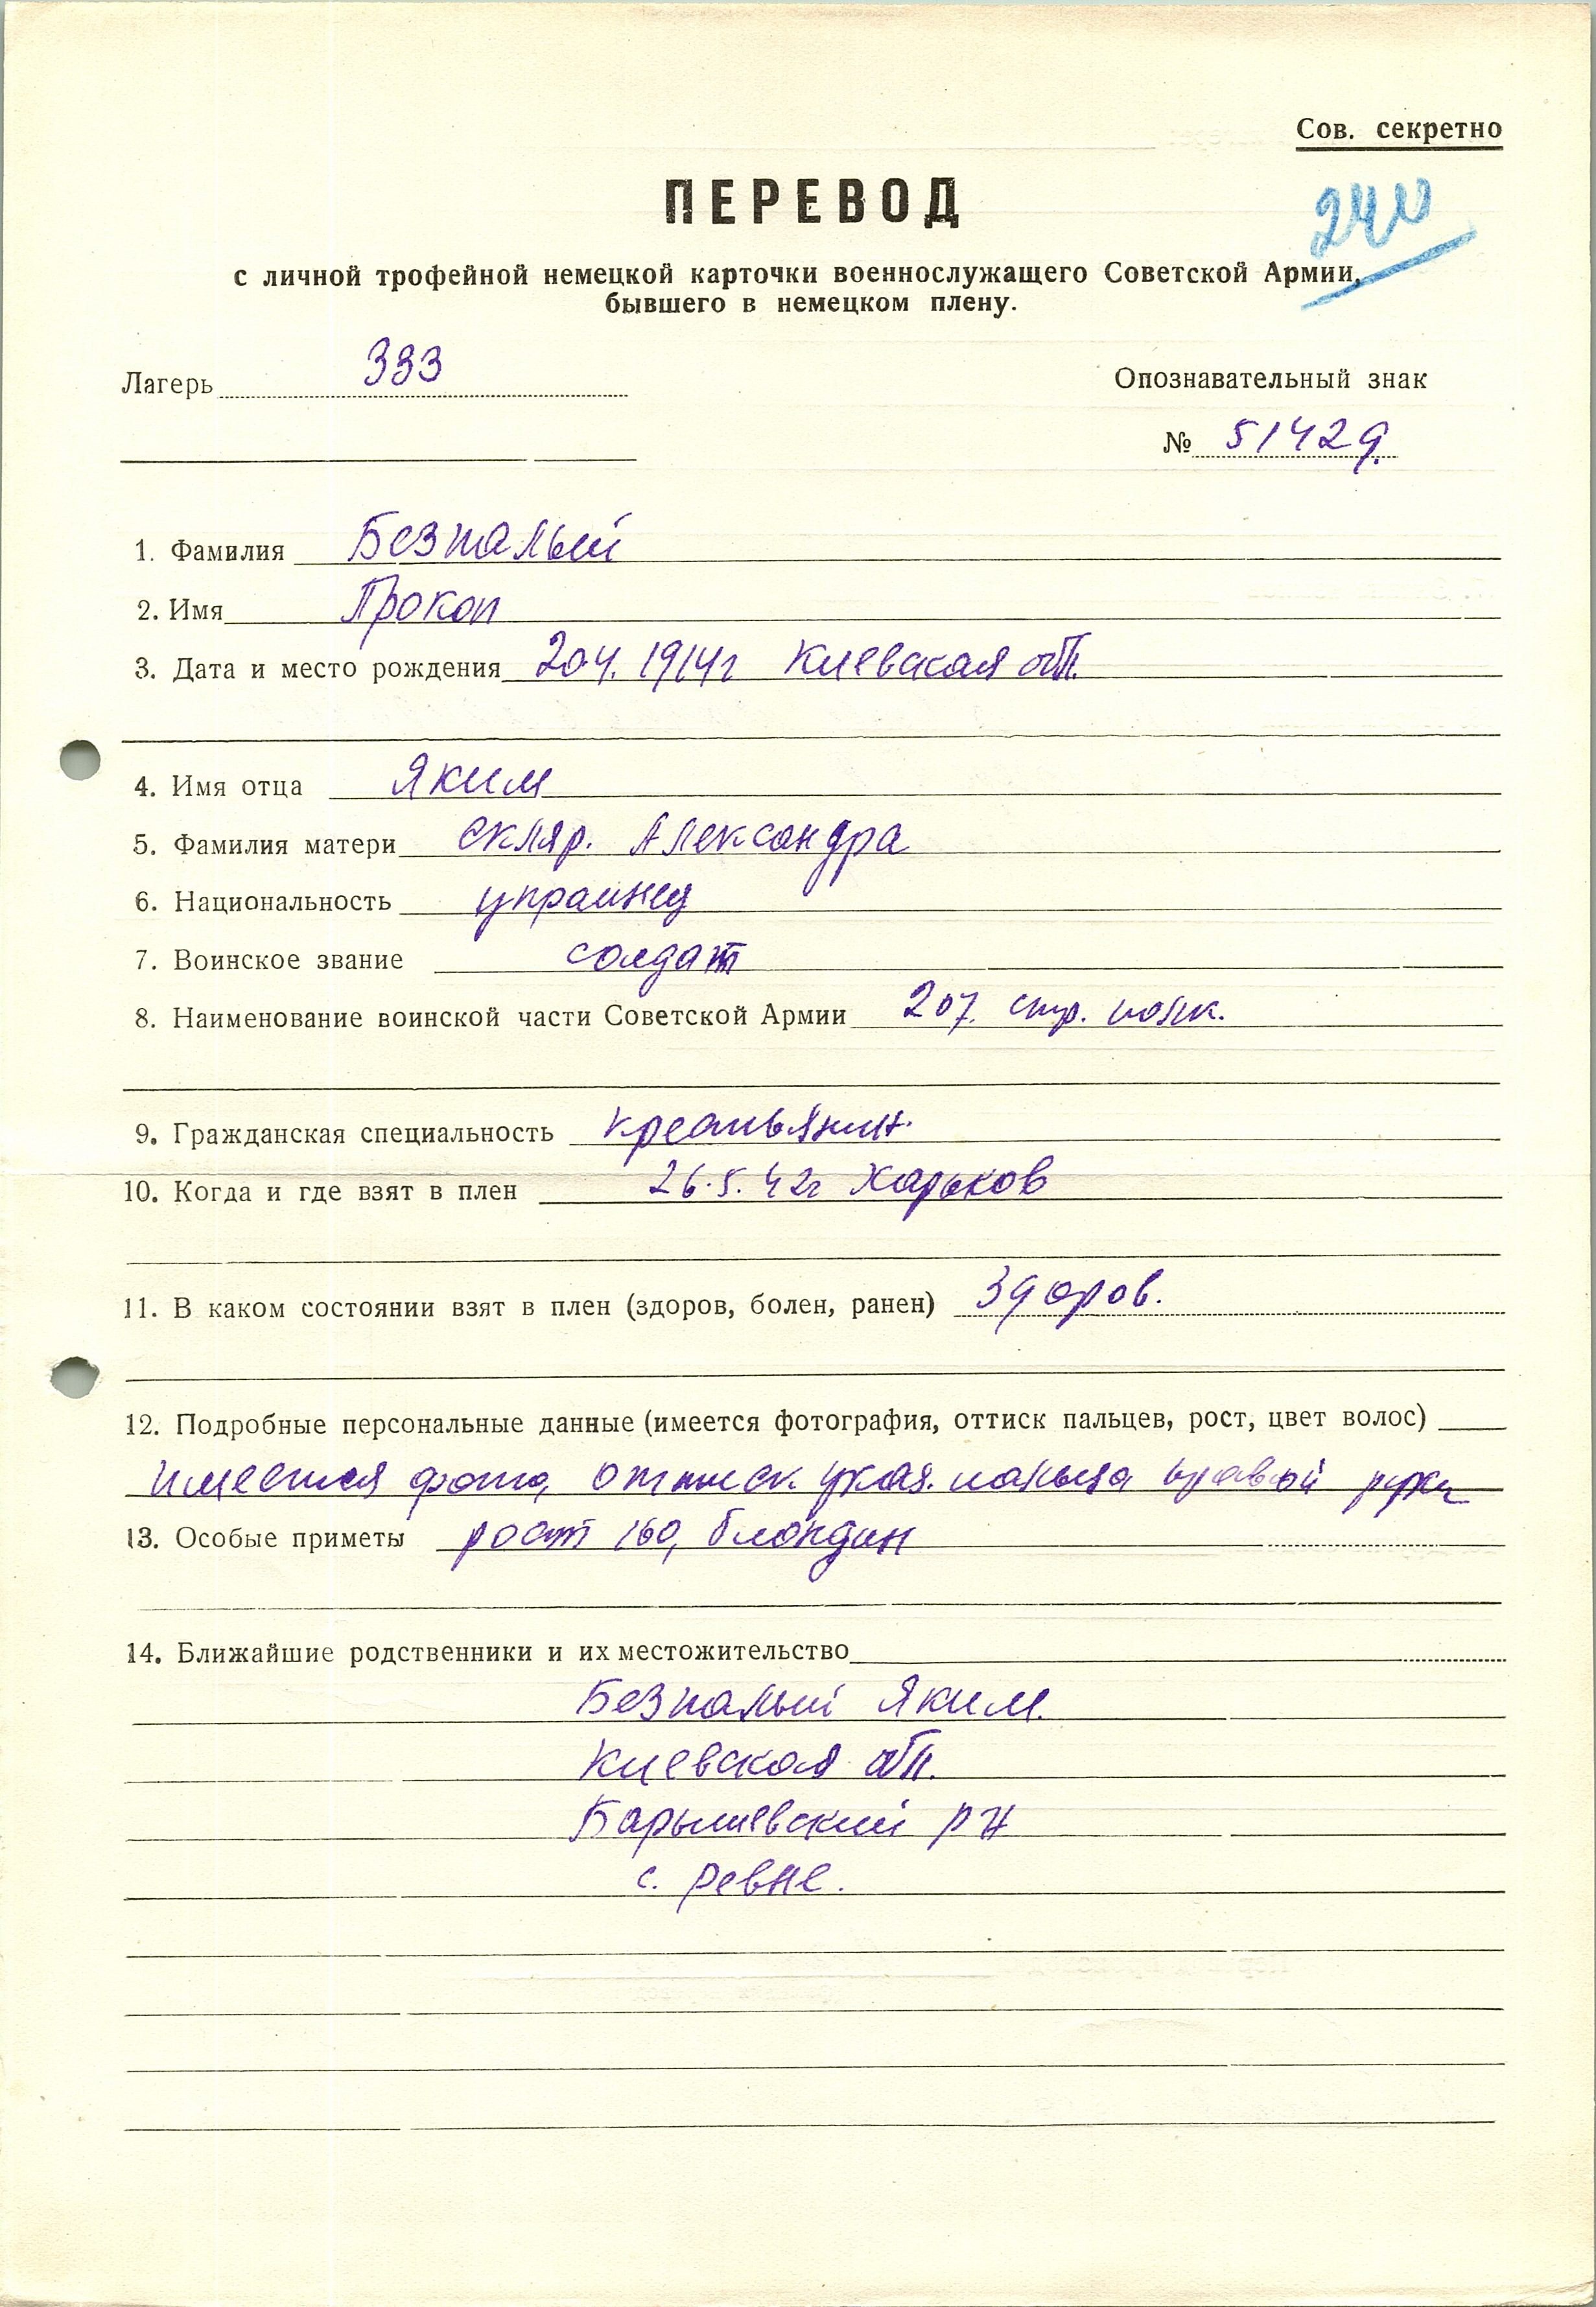 Сов. секретно
ПЕРЕВОД
240
с личной трофейной немецкой карточки военнослужащего Советской Армии,
бывшего в немецком плену.
Лагерь 333
Опознавательный знак
№ 51429.
1. Фамилия Безпалый
2. Имя Прокоп
3. Дата и место рождения 204. 1914г Киевская обл.
4. Имя отца Яким
5. Фамилия матери Скляр. Александра
6. Национальность украинец
7. Воинское звание солдат
8. Наименование воинской части Советской Армии 207. стр. полк.
9. Гражданская специальность крестьянин.
10. Когда и где взят в плен 26.5.42г Харьков
11. В каком состоянии взят в плен (здоров, болен, ранен) Здоров.
12. Подробные персональные данные (имеется фотография, оттиск пальцев, рост, цвет волос)
имеется фото, оттиск указ. пальца правой руки
13. Особые приметы рост 160, блондин
14. Ближайшие родственники и их местожительство
Безпалый Яким.
Киевская обл.
Барышевский р н
с. Ревне.